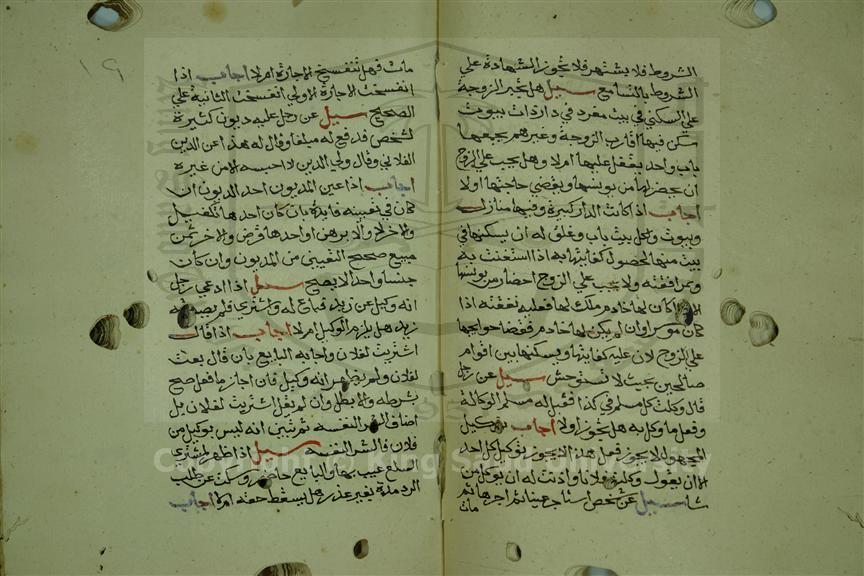 الشروط فلا يشتهر فلا تجوز الشهادة علي
الشروط بالتسامع سيل هل تجبر الزوجة
علي السكني في بيت مفرد في دار ذات بيوت
سكن فيها اقارب الزوجة وغيرهم يجمعها
باب واحد يقفل عليها ام لا وهل يجب علي الزوج
ان يحضر لها من يونسها ويقضي حاجتها اولا
اجاب اذا كانت الدار كبيرة وفيها منازل
وبيوت ولكل بيت باب وغلق له ان يسكنها في
بيت منها لحصول كفايتها به اذا استغنت به
وعرافقته ولا يجب علي الزوج احضار من يونسها
الا اذا كان لها خادم ملك لها فعليه نفقته اذا
كان موسرا وان لم يكن لها خادم فقضا حوايجها
علي الزوج لان عليه كفايتها ويسكنها بين اقوام
صالحين بحيث لا تستوحش سيل عن رجل
قال وكلت كل مسلم في كذا فقبل له مسلم الوكالة
وفعل ما وكل به هل تجوز اولا اجاب توكيل
المجهول لا يجوز فعل هذا لا يجوز توكيل كل احد
الا ان يقول وكلت فلانا واذنت له ان يوكل من
شا سيل عن شخص استاجر عينا ثم اجرها ثم
مات
مات فهل تنفسخ الاجارة ام لا اجاب اذا
انفسخت الاجارة الاولي انفسخت الثانية علي
الصحيح سيل عن رجل عليه ديون كثيرة
لشخص فدفع له مبلغا وقال له هذا عن الدين
الفلاني وقال ولي الدين لا احبسه الا من غيره
اجاب اذا عين المديون احد الديون ان
كان في تعيينه فايدة بان كان احدها بكفيل
والاخر لا والا برهن او احدها قرض والاخر ثمن
مبيع صحيح التعيين من المديون وان كانت
جنسا واحدا لا يصح سيل اذا ادعي رجل
انه وكيل عن زيد فباع له واشتري فلم يصدقه
زيد هل يلزم الوكيل ام لا اجاب اذا قال
اشتريت لفلان واجابه البايع بان قال بعت
لفلان ولم يظهر انه وكيل فان اجاز ما فعل صح
بشرطه والا بطل وان لم يقل اشتريت لفلان بل
اضاف الشرا لنفسه ثم تبين انه ليس بوكيل من
فلان فالشرا لنفسه سيل اذا ظهر لمشتري
السلع عيب بها والبايع حاضر وسكت عن طلب
الرد مدة بغير عذر هل يسقط حقه ام لا اجاب
١٩
Copyright © King Saud University